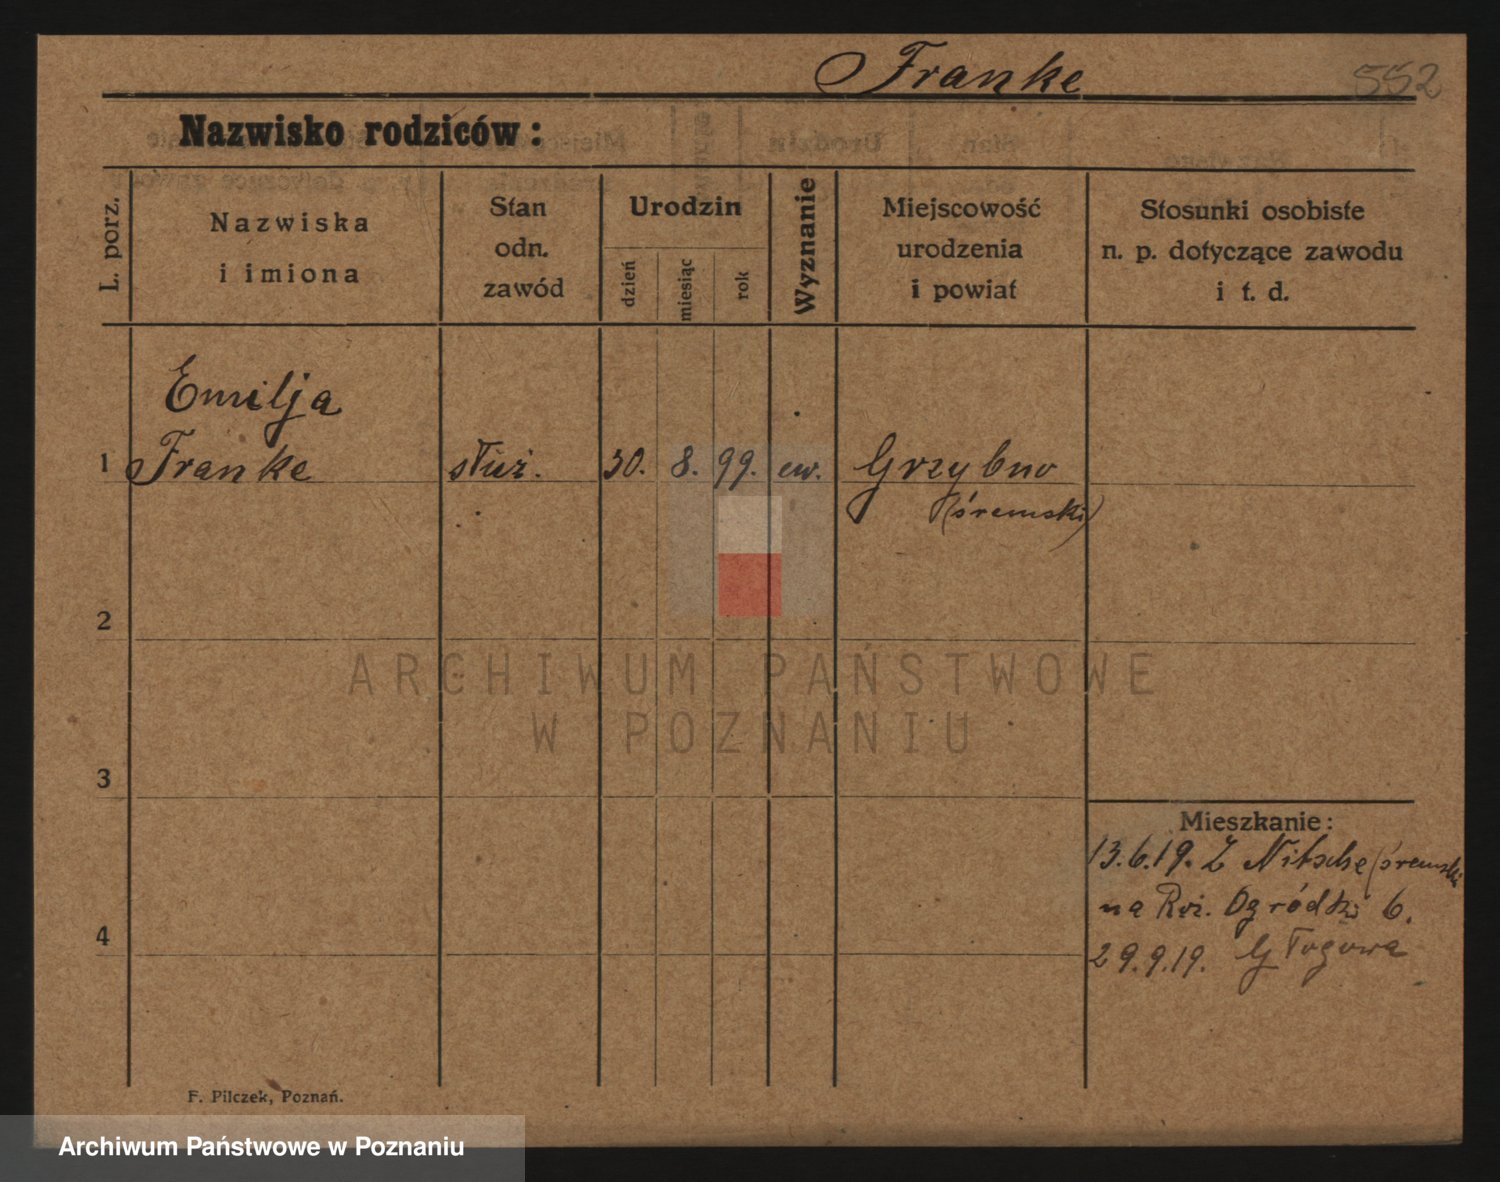 Franke
552
Nazwisko rodziców:
L. porz.
Nazwiska
i imiona
Stan
odn.
zawód
Urodzin
dzień
miesiąc
rok
Wyznanie
Miejscowość
urodzenia
i powiat
Stosunki osobiste
n. p. dotyczące zawodu
i t. d.
Emilja
1 Franke służ. 30. 8. 99. ew. Grzybno
(śremski)
2
3
4
Mieszkanie:
13.6.19. Z Nitsche (śremski
na Ogródki 6.
29.9.19. Głogowa
F. Pilczek, Poznań.
ARCHIWUM PAŃSTWOWE
W POZNANIU
Archiwum Państwowe w Poznaniu